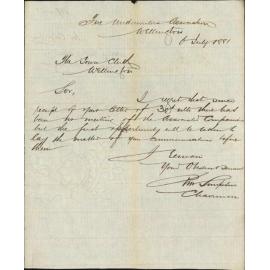 Fire Underwriters Association
Wellington
6 July 1881
The Town Clerk
Wellington
Sir,
I regret that since
receipt of your letter of 30th ulto there has
been no meeting of the Associated Companies
but the first opportunity will be taken to
lay the matter of your communication before
them
I remain
Your Obedient Servant
Chairman